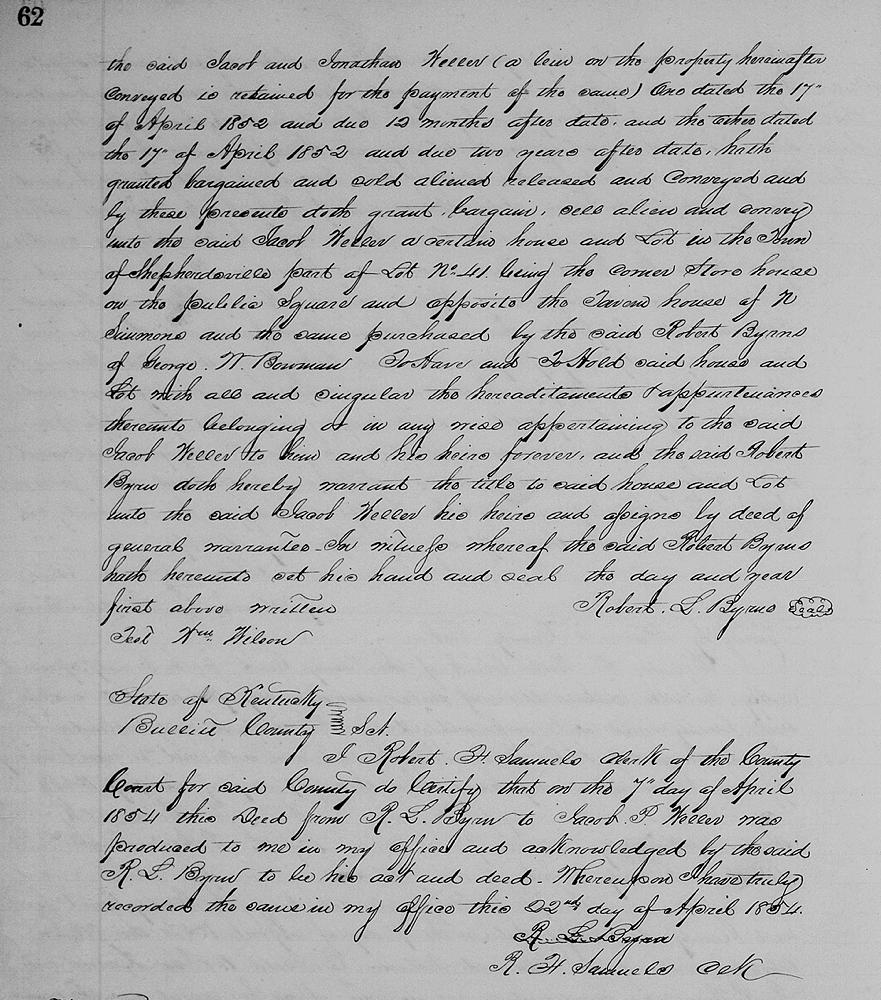 62
the said Jacob and Jonathan Weller (a lein on the property hereinafter
Conveyed is retained for the payment of the same) One dated the 17"
of April 1852 and due 12 months after date. and the other dated
the 17" of April 1852 and due two years after date, hath
granted bargained and sold aliened released and Conveyed and
by these presents doth grant, bargain, sell alien and convey
unto the said Jacob Weller a certain house and Lot in the Town
of Shepherdsville part of Lot No. 41. being the corner Store house
on the public Square and opposite the Tavern house of N
Simmons and the same purchased by the said Robert Byrns
of George. W. Bowman To Have and To Hold said house and
Lot with all and singular the hereaditaments & appurtenances
thereunto belonging or in any wise appertaining to the said
Jacob Weller to him and his heirs forever, and the said Robert
Byrns doth hereby warrant the title to said house and Lot
unto the said Jacob Weller his heirs and assigns by deed of
general warrantee - In witness whereof the said Robert Byrns
hath hereunto set his hand and seal the day and year
first above written Robert. L. Byrns Seal
Test Wm Wilson
State of Kentucky
Bullitt County Sct.
I Robert. F. Samuels Clerk of the County
Court for said County do Certify that on the 7" day of April
1854 this Deed from R. L. Byrns to Jacob. P Weller was
produced to me in my office and acknowledged by the said
R. L. Byrns to be his act and deed - Whereupon I have truly
recorded the same in my office this 22nd day of April 1854.
R. L. Byrns
R. F. Samuels Clk